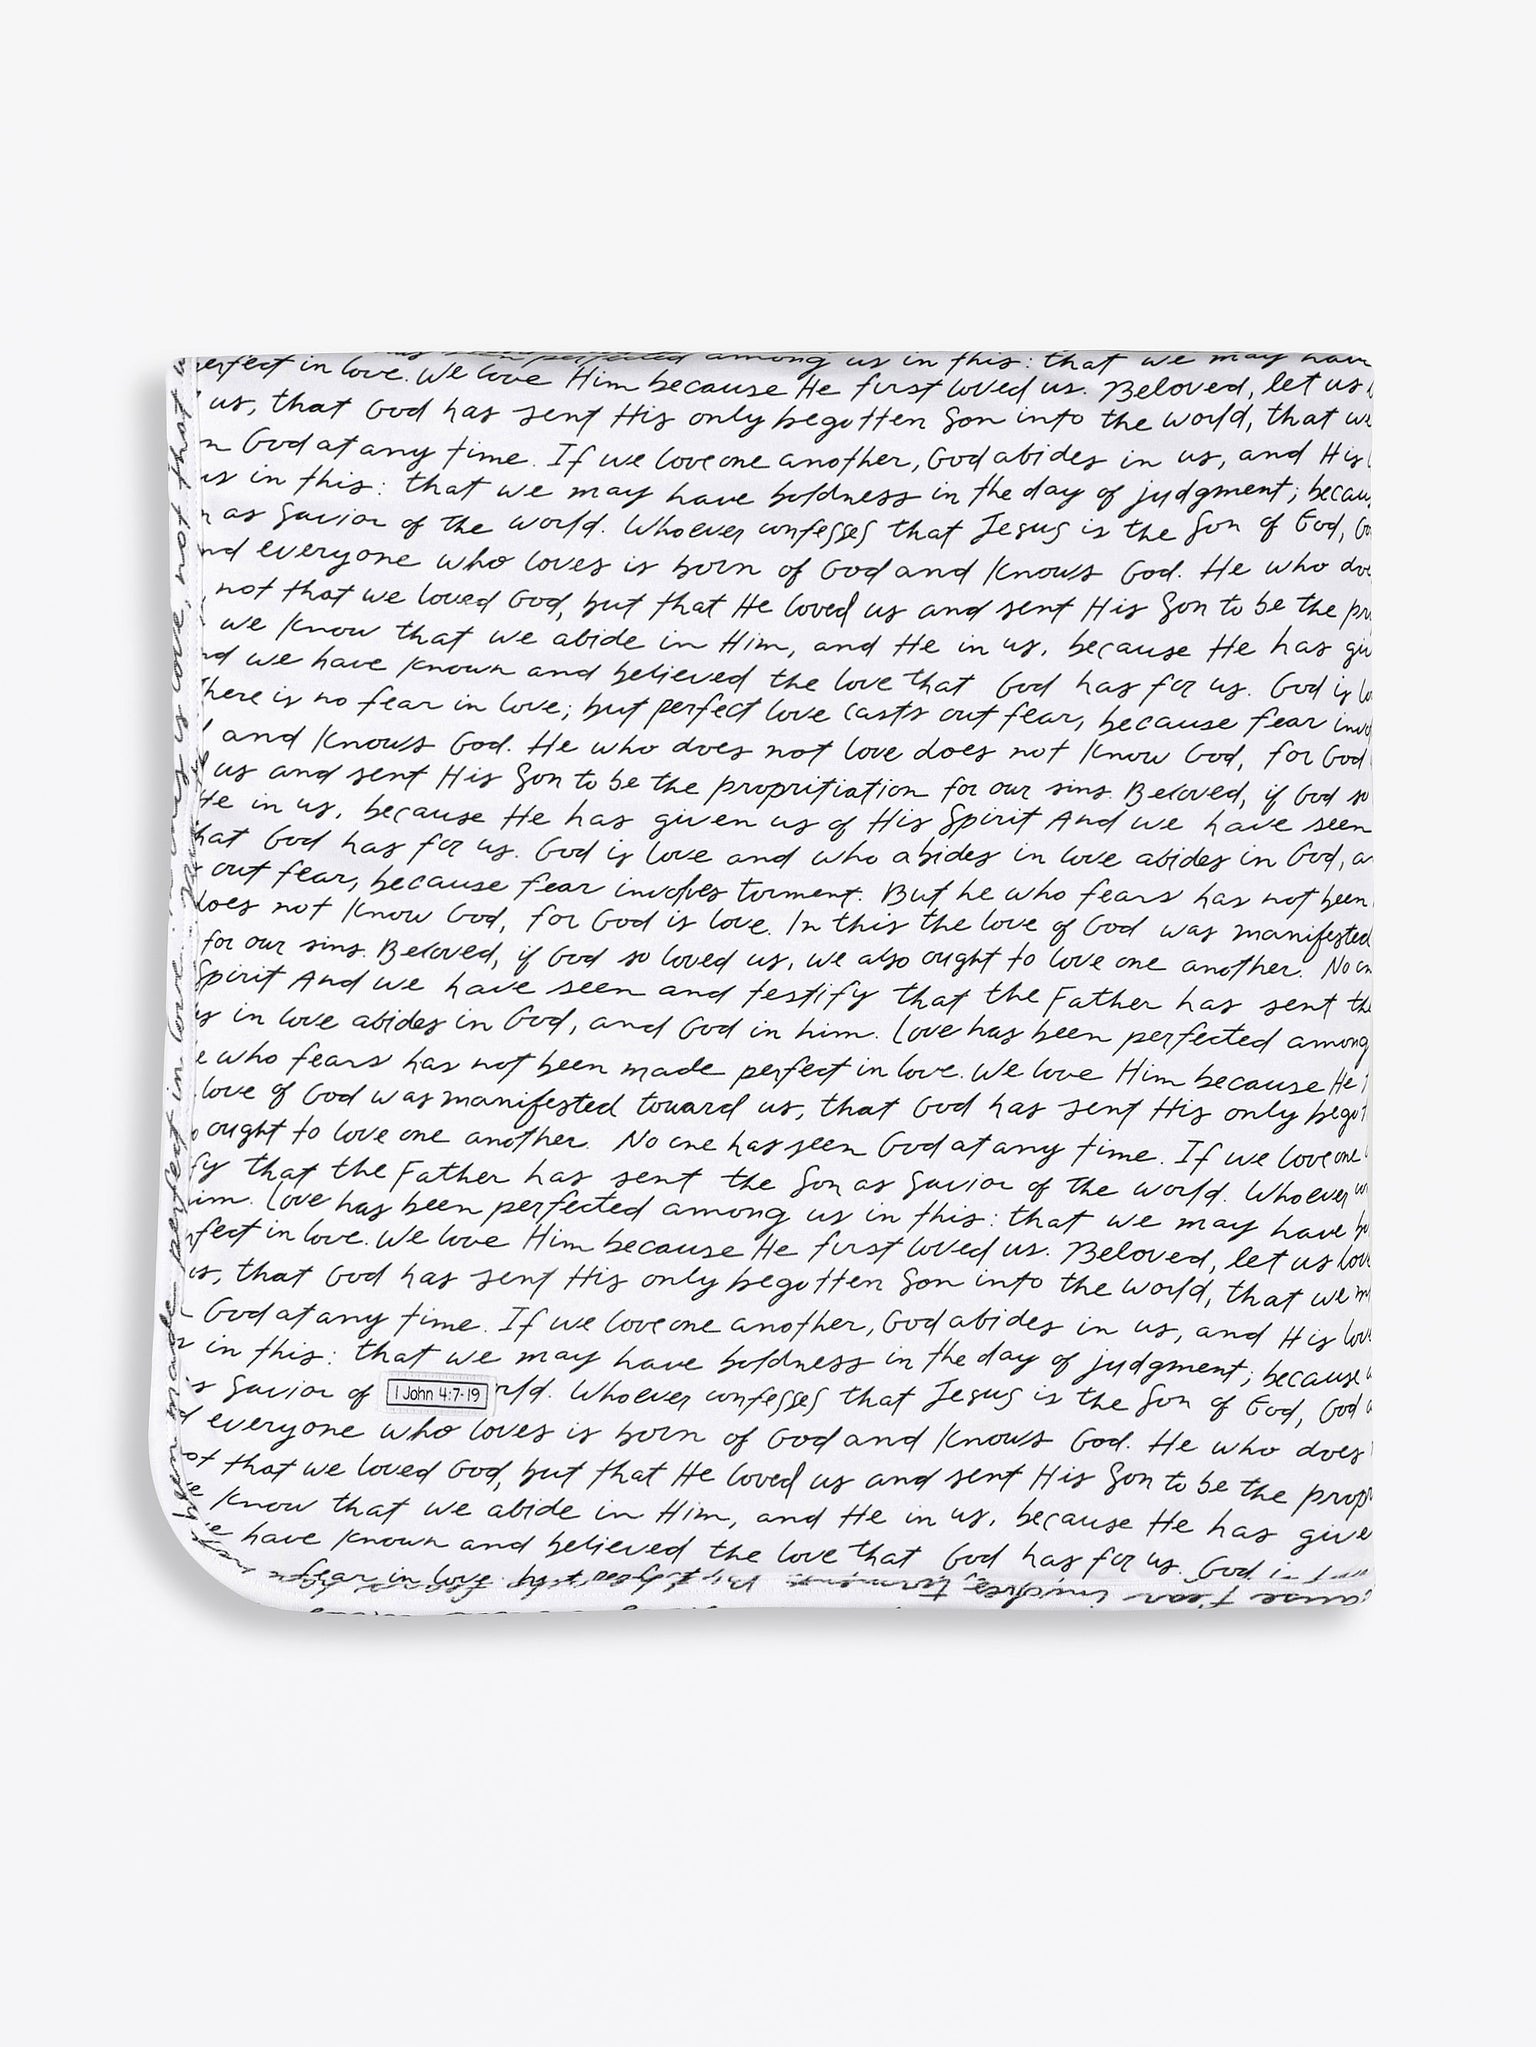 perfect in love. We love Him because He first loved us. Beloved, let us
us, that God has sent His only begotten Son into the world, that we
God at any time. If we love one another, God abides in us, and His
us in this: that we may have boldness in the day of judgment; becau
as Savior of the world. Whoever confesses that Jesus is the Son of God,
nd everyone who loves is born of God and knows God. He who doe
not that we loved God, but that He loved us and sent His Son to be the pr
we know that we abide in Him, and He in us, because He has giv
nd we have known and believed the love that God has for us. God is lo
There is no fear in love; but perfect love casts out fear, because fear invo
and knows God. He who does not love does not know God, for God
us and sent His Son to be the propritiation for our sins. Beloved, if God so
He in us, because He has given us of His Spirit And we have seen
hat God has for us. God is love and who abides in love abides in God, a
out fear, because fear involves torment. But he who fears has not been
does not know God, for God is love. In this the love of God was manifested
for our sins. Beloved, if God so loved us, we also ought to love one another. No on
Spirit And we have seen and testify that the Father has sent the
us in love abides in God, and God in him. Love has been perfected among
e who fears has not been made perfect in love. We love Him because He
love of God was manifested toward us, that God has sent His only begot
ought to love one another. No one has seen God at any time. If we love one
fy that the Father has sent the Son as Savior of the world. Whoever
him. Love has been perfected among us in this: that we may have bo
rfect in love. We love Him because He first loved us. Beloved, let us love
us, that God has sent His only begotten Son into the world, that we
God at any time. If we love one another, God abides in us, and His love
in this: that we may have boldness in the day of judgment; because
s Savior of rld. Whoever confesses that Jesus is the Son of God, God
1 John 4:7-19
d everyone who loves is born of God and knows God. He who does
ot that we loved God, but that He loved us and sent His Son to be the prop
e know that we abide in Him, and He in us, because He has give
e have known and believed the love that God has for us. God is
fear in love